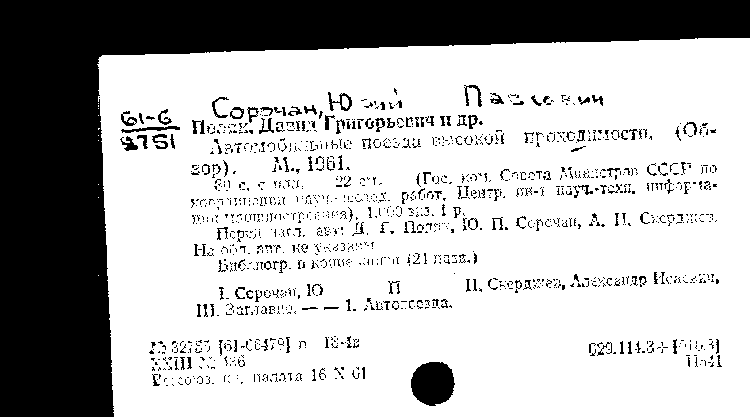 Сорочан, Ю Павлович
61-6
2751
Поляк, Давид Григорьевич и др.
Автомобильные поезда высокой проходимости. (Об-
зор). М., 1961.
80 с. с илл. 22 см. (Гос. ком. Совета Министров СССР по
координации науч.-исслед. работ. Центр. ин-т науч.-техн. информа-
ции машиностроения). 1.000 экз. 1 р.
Перед загл. авт: Д. Г. Поляк, Ю. П. Сорочан, А. И. Скерджев.
На обл. авт. не указаны
Библиогр. в конце книги (21 назв.)
I. Сорочан, Ю П II. Скерджев, Александр Исаевич,
III. Заглавие. — — 1. Автопоезда.
№ 32755 [61-06479] п 18-1в
XXIII № 436
Всесоюз. кн. палата 16 X 61
629.114.3+